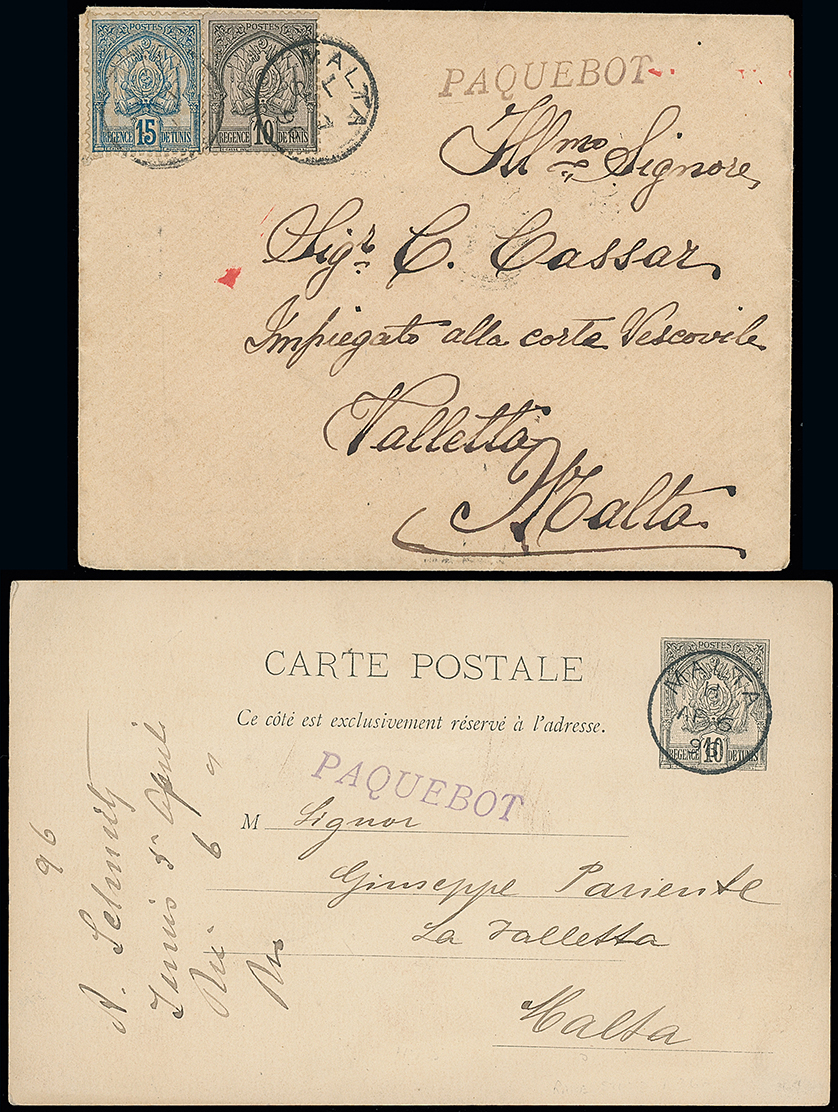 POSTES POSTES
15 10
REGENCE DE TUNIS REGENCE DE TUNIS
MALTA
PAQUEBOT
Ill.mo Signore
Sigr. C. Cassar
Impiegato alla corte Vescovile
Valletta
Malta
CARTE POSTALE
Ce côté est exclusivement réservé à l'adresse.
POSTES
10
REGENCE DE TUNIS
MALTA
AP 6
96
PAQUEBOT
M Signor
Giuseppe Pariente
La Valletta
Malta
96
A. Schmutz
Tunis 5 April
6